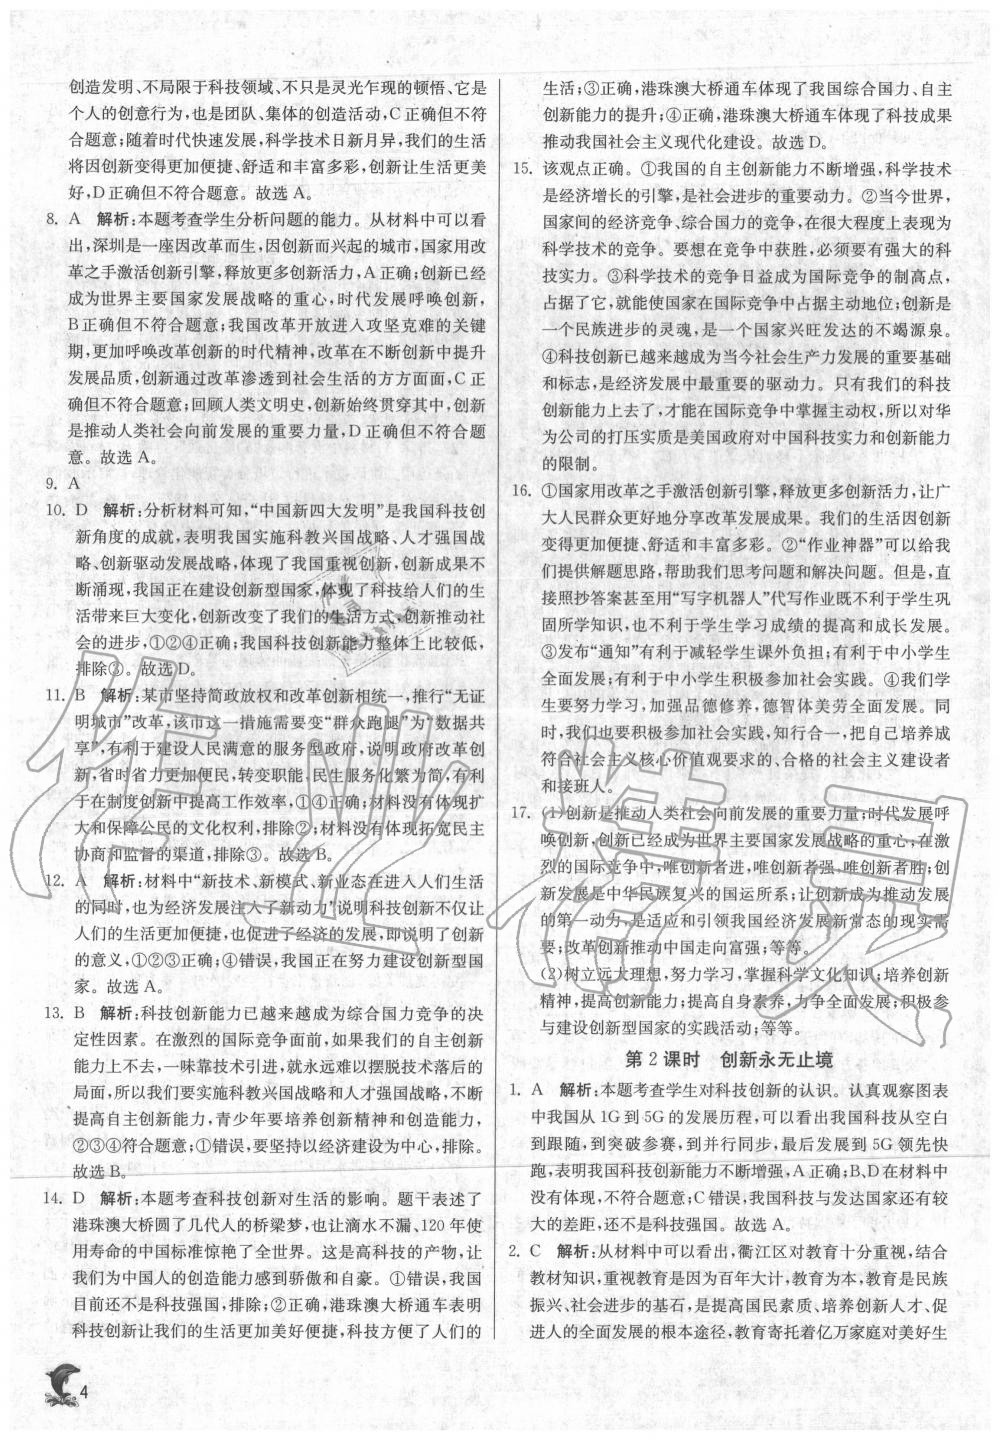 创造发明、不局限于科技领域、不只是灵光乍现的顿悟、它是
个人的创意行为、也是团队、集体的创造活动,C正确但不符
合题意;随着时代快速发展,科学技术日新月异,我们的生活
将因创新变得更加便捷、舒适和丰富多彩,创新让生活更美
好,D正确但不符合题意。故选A。
8. A 解析:本题考查学生分析问题的能力。从材料中可以看
出,深圳是一座因改革而生,因创新而兴起的城市,国家用改
革之手激活创新引擎,释放更多创新活力,A正确;创新已经
成为世界主要国家发展战略的重心,时代发展呼唤创新,
B正确但不符合题意;我国改革开放进入攻坚克难的关键
期,更加呼唤改革创新的时代精神,改革在不断创新中提升
发展品质,创新通过改革渗透到社会生活的方方面面,C正
确但不符合题意;回顾人类文明史,创新始终贯穿其中,创新
是推动人类社会向前发展的重要力量,D正确但不符合题
意。故选A。
9. A
10. D 解析:分析材料可知,“中国新四大发明”是我国科技创
新角度的成就,表明我国实施科教兴国战略、人才强国战
略、创新驱动发展战略,体现了我国重视创新,创新成果不
断涌现,我国正在建设创新型国家,体现了科技给人们的生
活带来巨大变化,创新改变了我们的生活方式,创新推动社
会的进步,①②④正确;我国科技创新能力整体上比较低,
排除③。故选D。
11. B 解析:某市坚持简政放权和改革创新相统一,推行“无证
明城市”改革,该市这一措施需要变“群众跑腿”为“数据共
享”,有利于建设人民满意的服务型政府,说明政府改革创
新,省时省力更加便民,转变职能、民生服务化繁为简,有利
于在制度创新中提高工作效率,①④正确;材料没有体现扩
大和保障公民的文化权利,排除②;材料没有体现拓宽民主
协商和监督的渠道,排除③。故选B。
12. A 解析:材料中“新技术、新模式、新业态在进入人们生活
的同时,也为经济发展注入了新动力”说明科技创新不仅让
人们的生活更加便捷,也促进了经济的发展,即说明了创新
的意义,①②③正确;④错误,我国正在建设创新型国
家。故选A。
13. B 解析:科技创新能力已越来越成为综合国力竞争的决
定性因素。在激烈的国际竞争面前,如果我们的自主创新
能力上不去,一味靠技术引进,就永远难以摆脱技术落后的
局面,所以我们要实施科教兴国战略和人才强国战略,不断
提高自主创新能力,青少年要培养创新精神和创造能力,
②③④符合题意;①错误,要坚持以经济建设为中心,排除。
故选B。
14. D 解析:本题考查科技创新对生活的影响。题干表述了
港珠澳大桥圆了几代人的桥梁梦,也让滴水不漏、120年使
用寿命的中国标准惊艳了全世界。这是高科技的产物,让
我们为中国人的创造能力感到骄傲和自豪。①错误,我国
目前还不是科技强国,排除;②正确,港珠澳大桥通车表明
科技创新让我们的生活更加美好便捷,科技方便了人们的
生活;③正确,港珠澳大桥通车体现了我国综合国力、自主
创新能力的提升;④正确,港珠澳大桥通车体现了科技成果
推动我国社会主义现代化建设。故选D。
15. 该观点正确。①我国的自主创新能力不断增强,科学技术
是经济增长的引擎,是社会进步的重要动力。②当今世界,
国家间的经济竞争、综合国力的竞争,在很大程度上表现为
科学技术的竞争。要想在竞争中获胜,必须要有强大的科
技实力。③科学技术的竞争日益成为国际竞争的制高点,
占据了它,就能使国家在国际竞争中占据主动地位;创新是
一个民族进步的灵魂,是一个国家兴旺发达的不竭源泉。
④科技创新已越来越成为当今社会生产力发展的重要基础
和标志,是经济发展中最重要的驱动力。只有我们的科技
创新能力上去了,才能在国际竞争中掌握主动权,所以对华
为公司的打压实质是美国政府对中国科技实力和创新能力
的限制。
16. ①国家用改革之手激活创新引擎,释放更多创新活力,让广
大人民群众更好地分享改革发展成果。我们的生活因创新
变得更加便捷、舒适和丰富多彩。②“作业神器”可以给我
们提供解题思路,帮助我们思考问题和解决问题。但是,直
接照抄答案甚至用“写字机器人”代写作业既不利于学生巩
固所学知识,也不利于学生学习成绩的提高和成长发展。
③发布“通知”有利于减轻学生课外负担;有利于中小学生
全面发展;有利于中小学生积极参加社会实践。④我们学
生要努力学习,加强品德修养,德智体美劳全面发展。同
时,我们也要积极参加社会实践,知行合一,把自己培养成
符合社会主义核心价值观要求的、合格的社会主义建设者
和接班人。
17. (1)创新是推动人类社会向前发展的重要力量;时代发展呼
唤创新,创新已经成为世界主要国家发展战略的重心;在激
烈的国际竞争中,唯创新者进,唯创新者强,唯创新者胜;创
新发展是中华民族复兴的国运所系;让创新成为推动发展
的第一动力,是适应和引领我国经济发展新常态的现实需
要;改革创新推动中国走向富强;等等。
(2)树立远大理想,努力学习,掌握科学文化知识;培养创新
精神,提高创新能力;提高自身素养,力争全面发展;积极参
与建设创新型国家的实践活动;等等。
第2课时 创新永无止境
1. A 解析:本题考查学生对科技创新的认识。认真观察图表
中我国从1G到5G的发展历程,可以看出我国科技从空白
到跟随,到突破参赛,到并行同步,最后发展到5G领先快
跑,表明我国科技创新能力不断增强,A正确;B、D在材料中
没有体现,不符合题意;C错误,我国科技与发达国家还有较
大的差距,还不是科技强国。故选A。
2. C 解析:从材料中可以看出,衢江区对教育十分重视,结合
教材知识,重视教育是因为百年大计,教育为本,教育是民族
振兴、社会进步的基石,是提高国民素质、培养创新人才、促
进人的全面发展的根本途径,教育寄托着亿万家庭对美好生
4
作业精灵